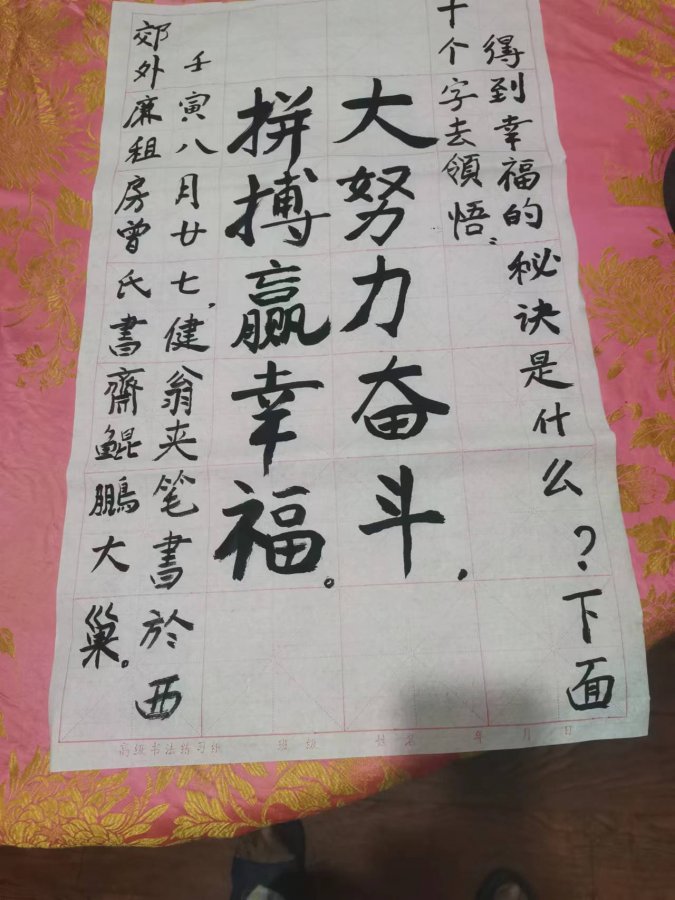 得到幸福的秘诀是什么？下面
十个字去领悟：
大努力奋斗，
拼搏赢幸福。
壬寅八月廿七，健翁夹笔書於西
郊外廉租房曾氏書齋鲲鹏大巢。
高级书法练习纸 班级 姓名 年 月 日